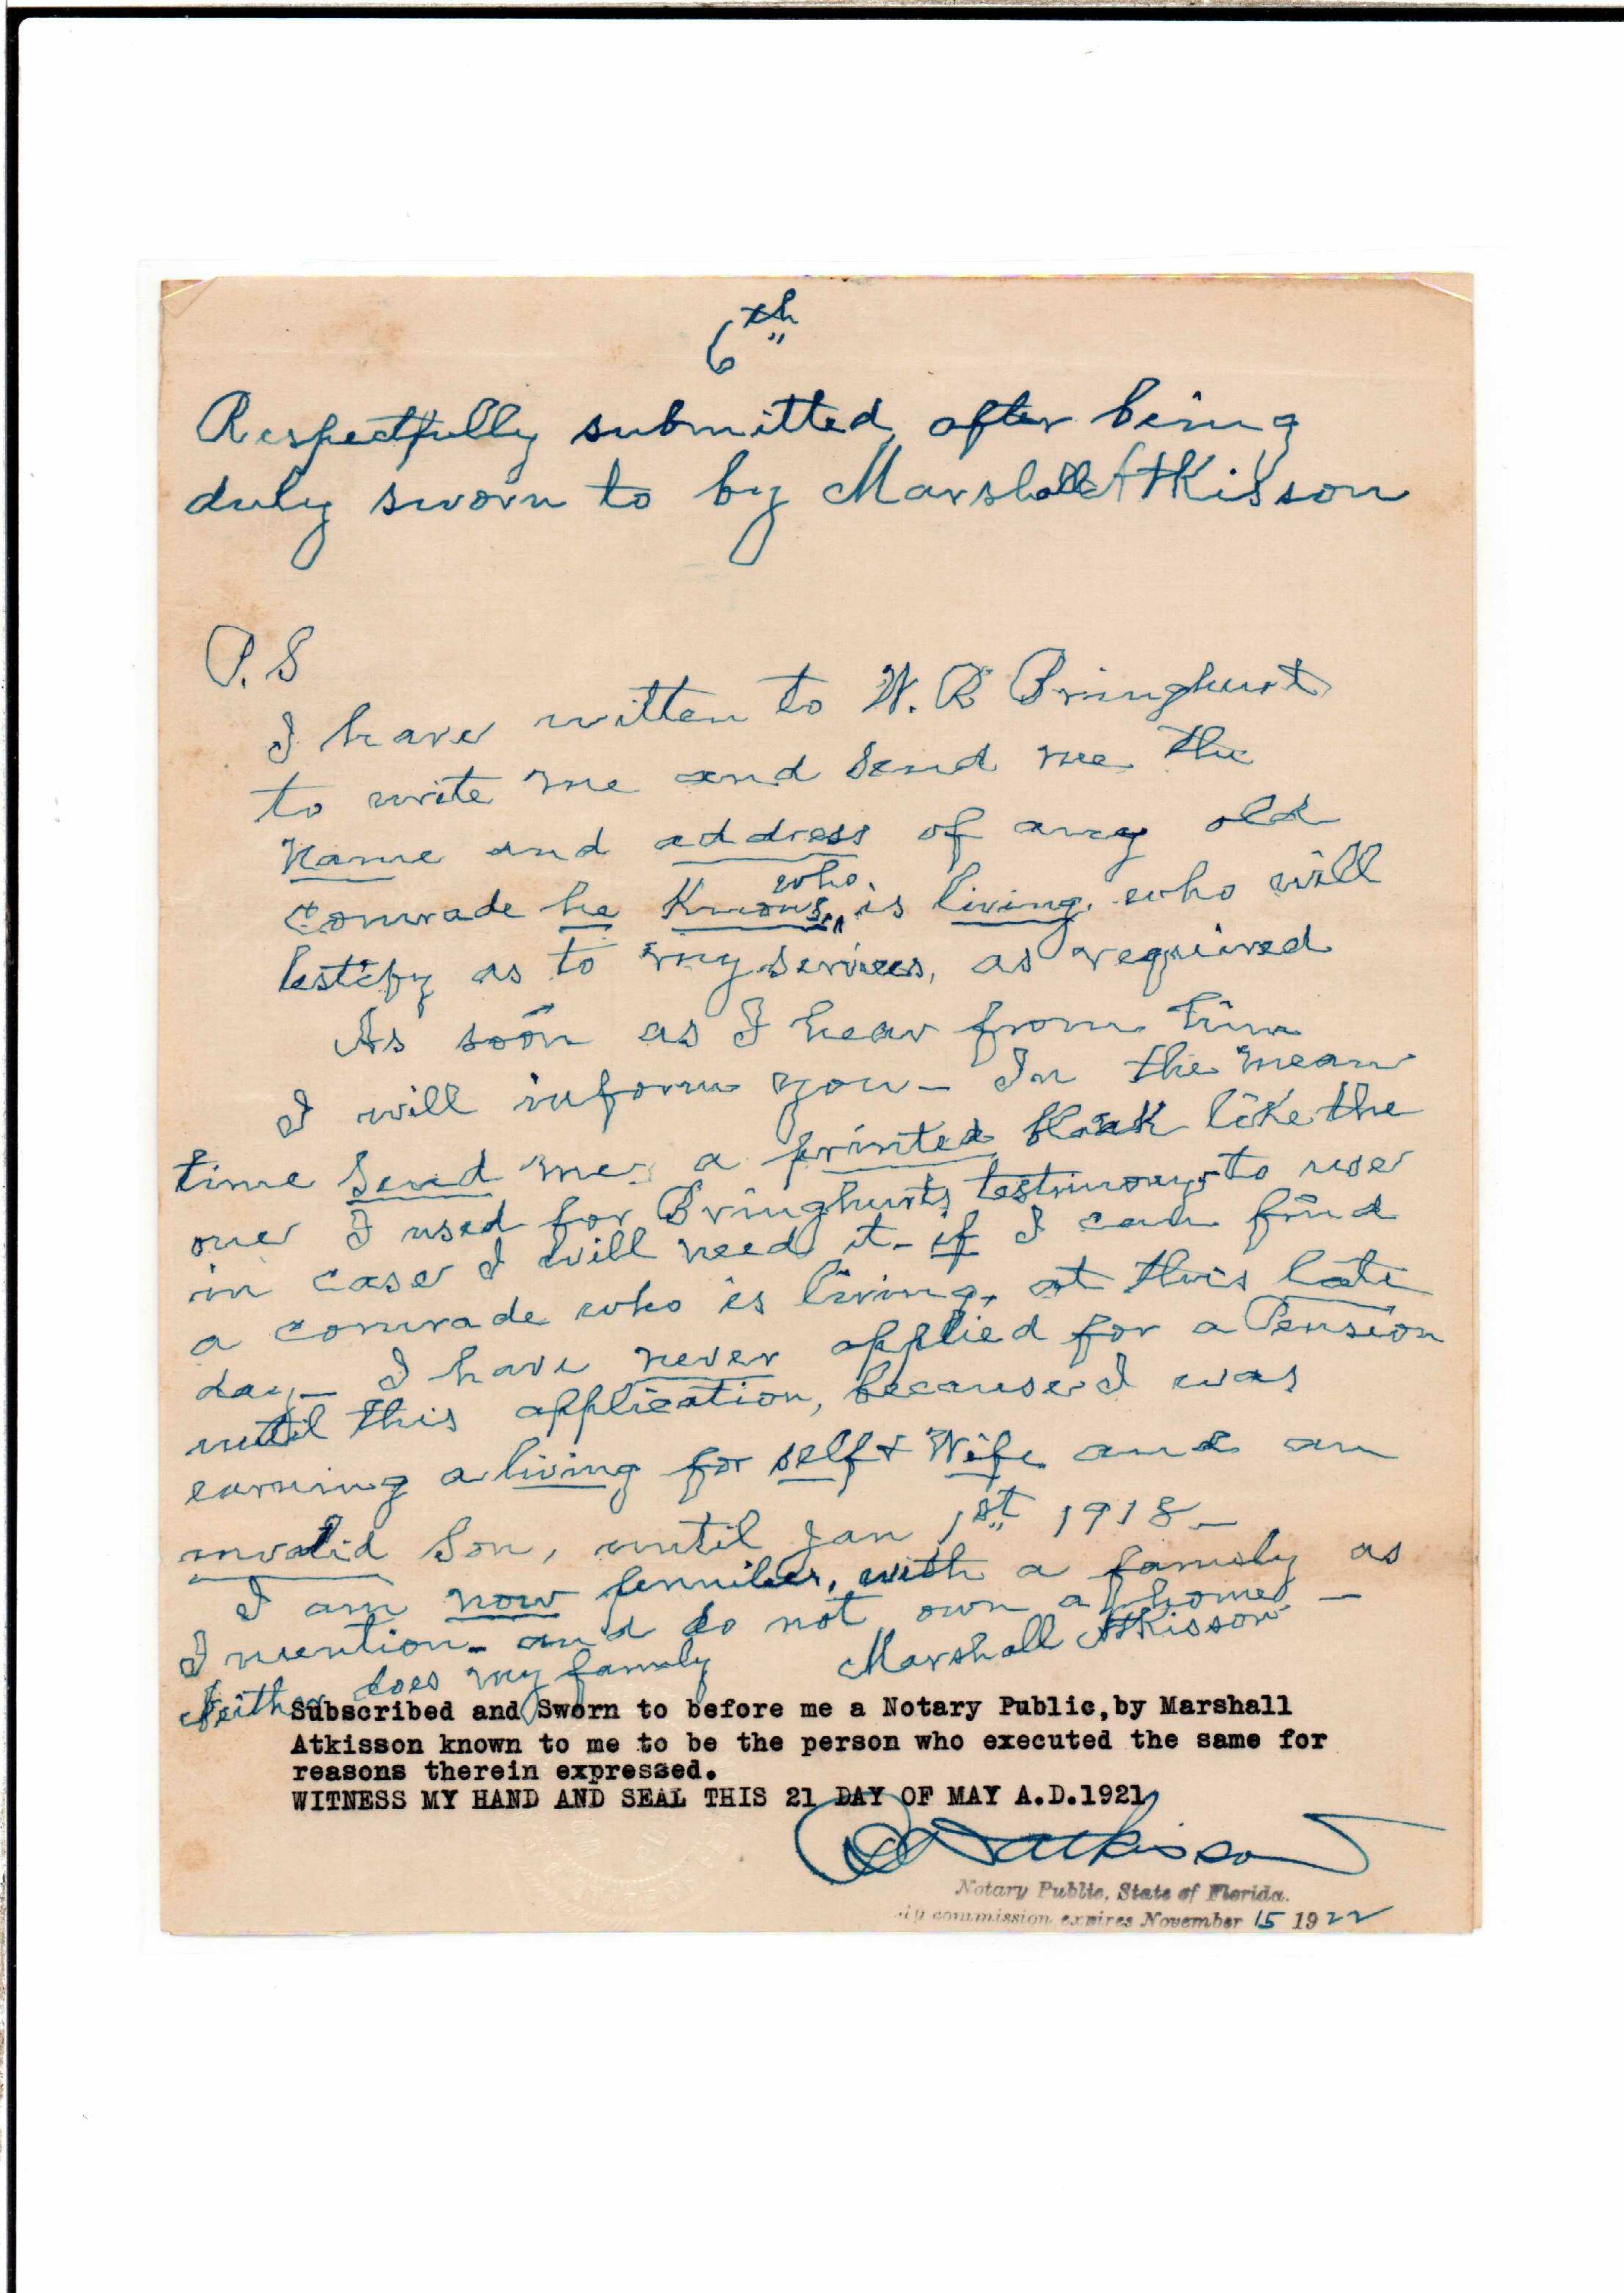 6th
Respectfully submitted, after being
duly sworn to by Marshall Atkisson
P.S
I have written to W. R Bringhurst
to write me and send me the
Name and address of any old
who
comrade he knows is living, who will
testify as to my services, as required
As soon as I hear from him
I will inform you - In the mean
time send me a printed blank like the
one I used for Bringhursts testimony to use
in case I will need it - if I can find
a comrade who is living, at this late
day - I have never applied for a Pension
until this application, because I was
earning a living for self & Wife and an
invalid Son, until Jan 1st 1918 -
I am now penniless, with a family as
I mention - and do not own a home -
Neither does my family
Marshall Atkisson
Subscribed and Sworn to before me a Notary Public, by Marshall
Atkisson known to me to be the person who executed the same for
reasons therein expressed.
WITNESS MY HAND AND SEAL THIS 21 DAY OF MAY A.D. 1921
Atkisson
Notary Public, State of Florida.
My commission expires November 15 1922